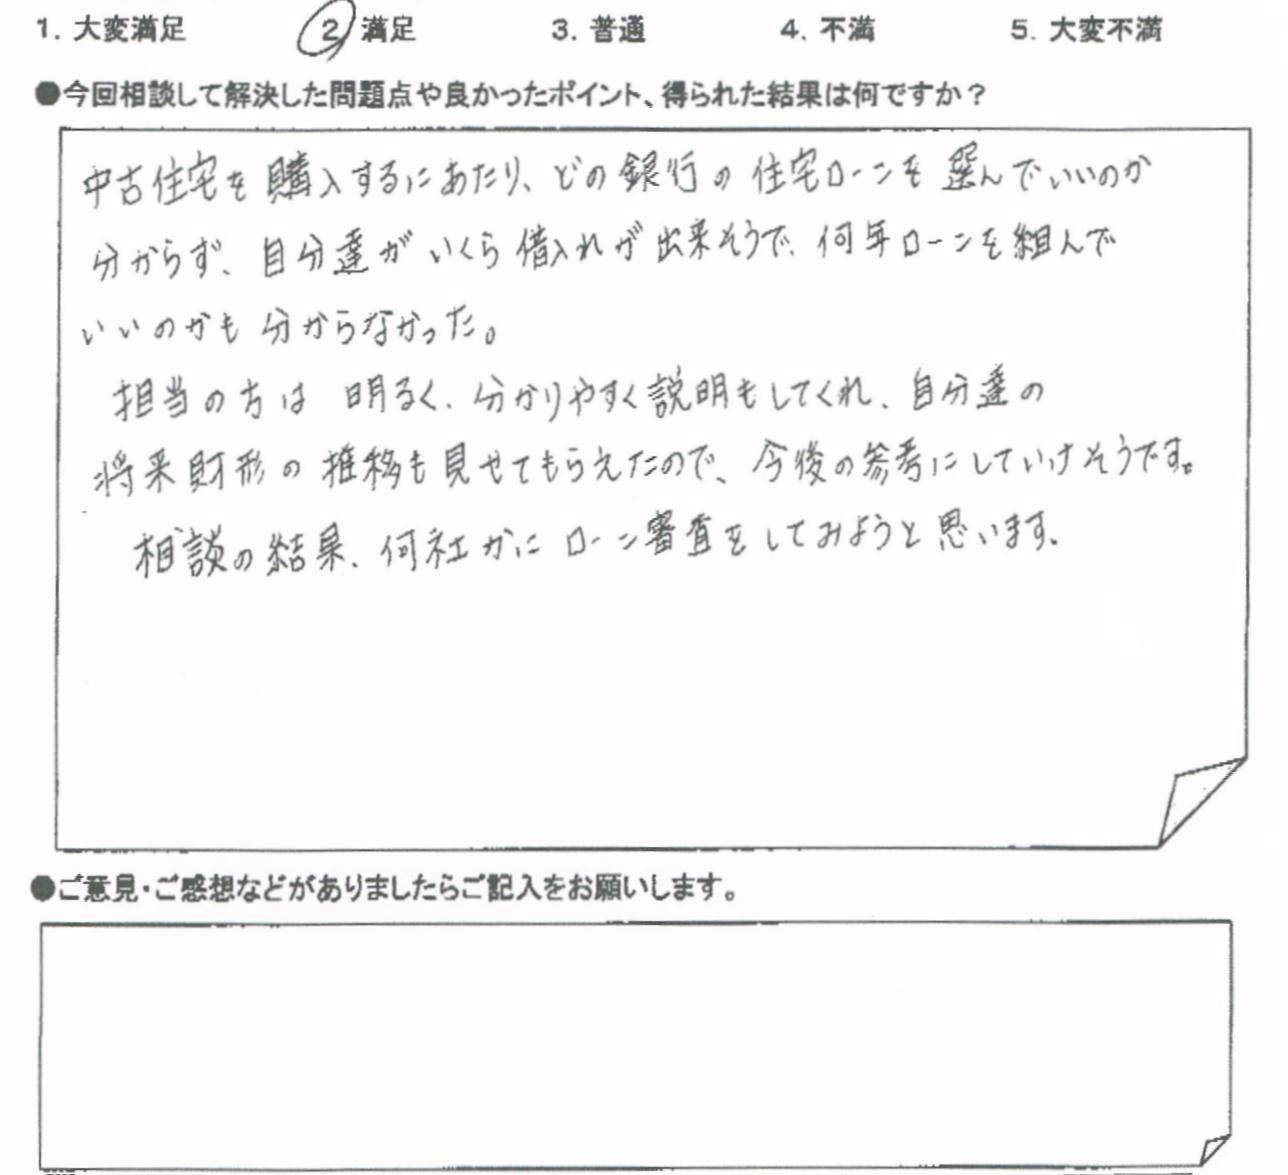 1. 大変満足 2 満足 3. 普通 4. 不満 5. 大変不満
●今回相談して解決した問題点や良かったポイント、得られた結果は何ですか？
中古住宅を購入するにあたり、どの銀行の住宅ローンを選んでいいのか
分からず、自分達がいくら借入れが出来そうで、何年ローンを組んで
いいのかも分からなかった。
担当の方は明るく、分かりやすく説明もしてくれ、自分達の
将来財形の推移も見せてもらえたので、今後の参考にしていけそうです。
相談の結果、何社かにローン審査をしてみようと思います。
●ご意見・ご感想などがありましたらご記入をお願いします。